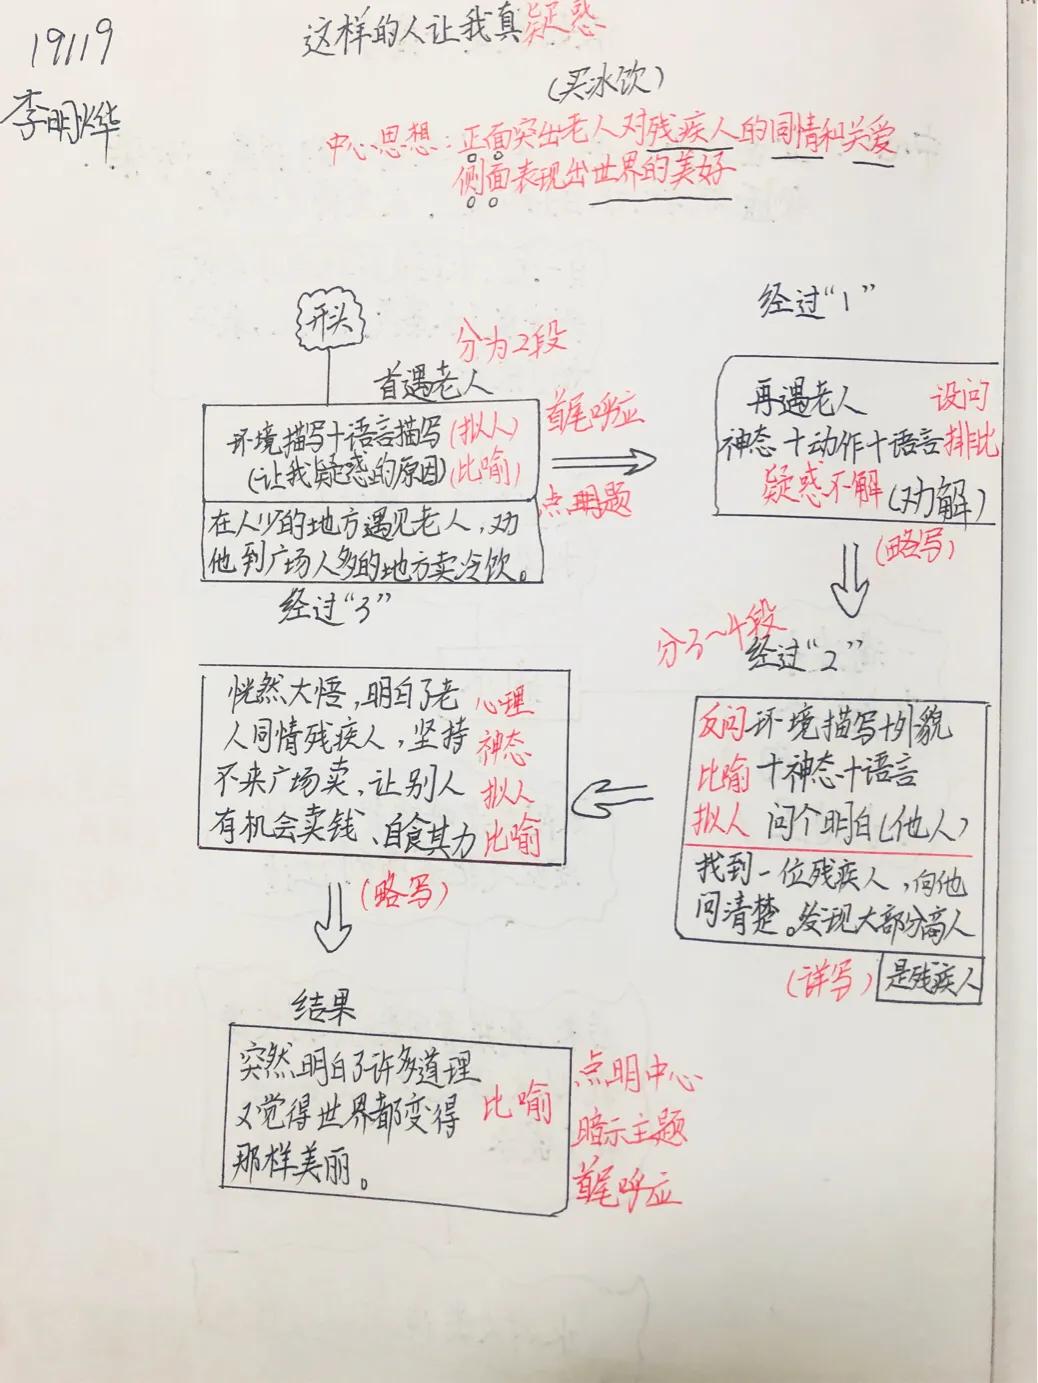 19119
李明烨
这样的人让我真疑惑
(买冰饮)
中心思想：正面突出老人对残疾人的同情和关爱
侧面表现出世界的美好
开头
分为2段
首遇老人
环境描写+语言描写(拟人)
(让我疑惑的原因)(比喻)
首尾呼应
点明题
在人少的地方遇见老人，劝
他到广场人多的地方卖冷饮。
经过“1”
再遇老人 设问
神态+动作+语言 排比
疑惑不解(劝解)
(略写)
分3~4段
经过“2”
反问 环境描写+外貌
比喻 +神态+语言
拟人 问个明白(他人)
找到一位残疾人，向他
问清楚。发现大部分商人
是残疾人
(详写)
经过“3”
恍然大悟，明白了老 心理
人同情残疾人，坚持 神态
不来广场卖，让别人 拟人
有机会卖钱、自食其力 比喻
(略写)
结果
突然明白了许多道理
又觉得世界都变得 比喻
那样美丽。
点明中心
暗示主题
首尾呼应